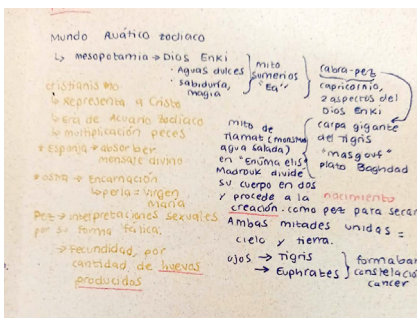 Mundo Acuático zodiaco
↳ mesopotamia → Dios Enki
· Aguas dulces
· sabiduría, magia
mito
sumerios
"Ea"
cabra-pez
capricornio,
2 aspectos del
Dios Enki
cristianismo
↳ Representa a Cristo
↳ Era de Acuario Zodiaco
↳ multiplicación peces
* Esponja → absorber
mensaje divino
* ostra → Encarnación
↳ perla = virgen
maría
Pez → interpretaciones sexuales
por su forma fálica.
→ Fecundidad, por
cantidad de huevos
producidos
carpa gigante
del tigris
"masgouf"
plato Baghdad
mito de
Tiamat (monstruo
agua salada)
en "Enûma elis"
Madrouk divide
su cuerpo en dos
y procede a la nacimiento
creación. como pez para secar
Ambas mitades unidas =
cielo y tierra.
ojos → Tigris
→ Euphrates
formaban
constelación
cancer